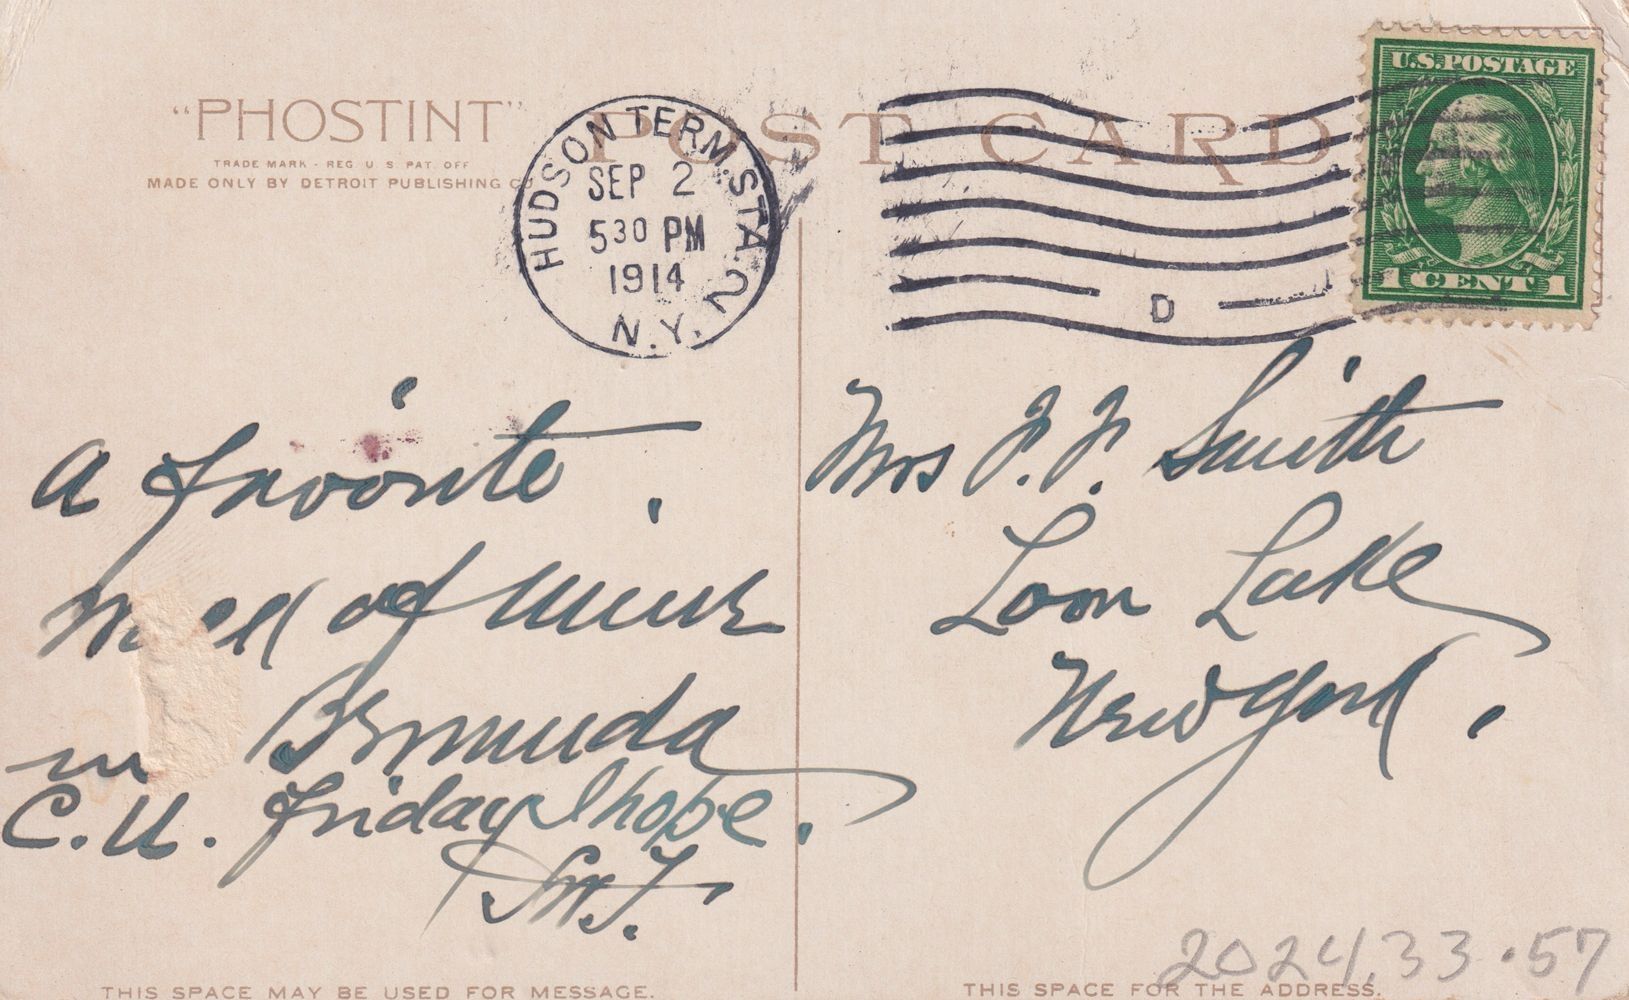 "PHOSTINT"
TRADE MARK - REG U S PAT. OFF
MADE ONLY BY DETROIT PUBLISHING CO
POST CARD
HUDSON TERM. STA. 2
SEP 2
5 30 PM
1914
N.Y.
D
U.S. POSTAGE
1 CENT 1
a favorite.
of mine
in Bermuda
C.U. Friday I hope.
Mrs J. F. Smith
Loon Lake
New York.
2024.33.57
THIS SPACE MAY BE USED FOR MESSAGE.
THIS SPACE FOR THE ADDRESS.